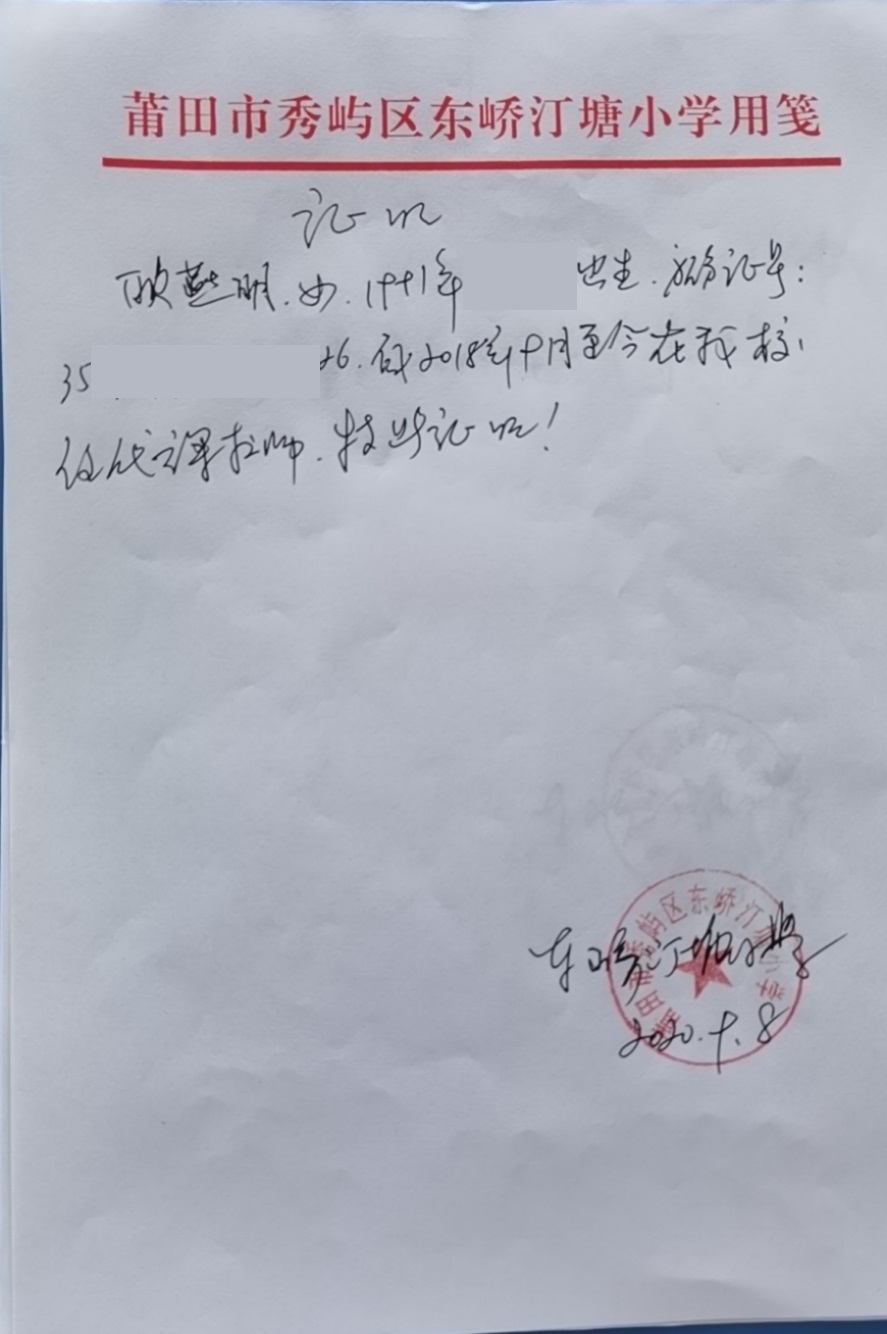 莆田市秀屿区东峤汀塘小学用笺
证明
欧燕明.女.1991年 出生.身份证号:
35 26.自2018年9月至今在我校
任代课教师.特此证明!
莆田市秀屿区东峤汀塘小学
东峤汀塘小学
2020.9.8